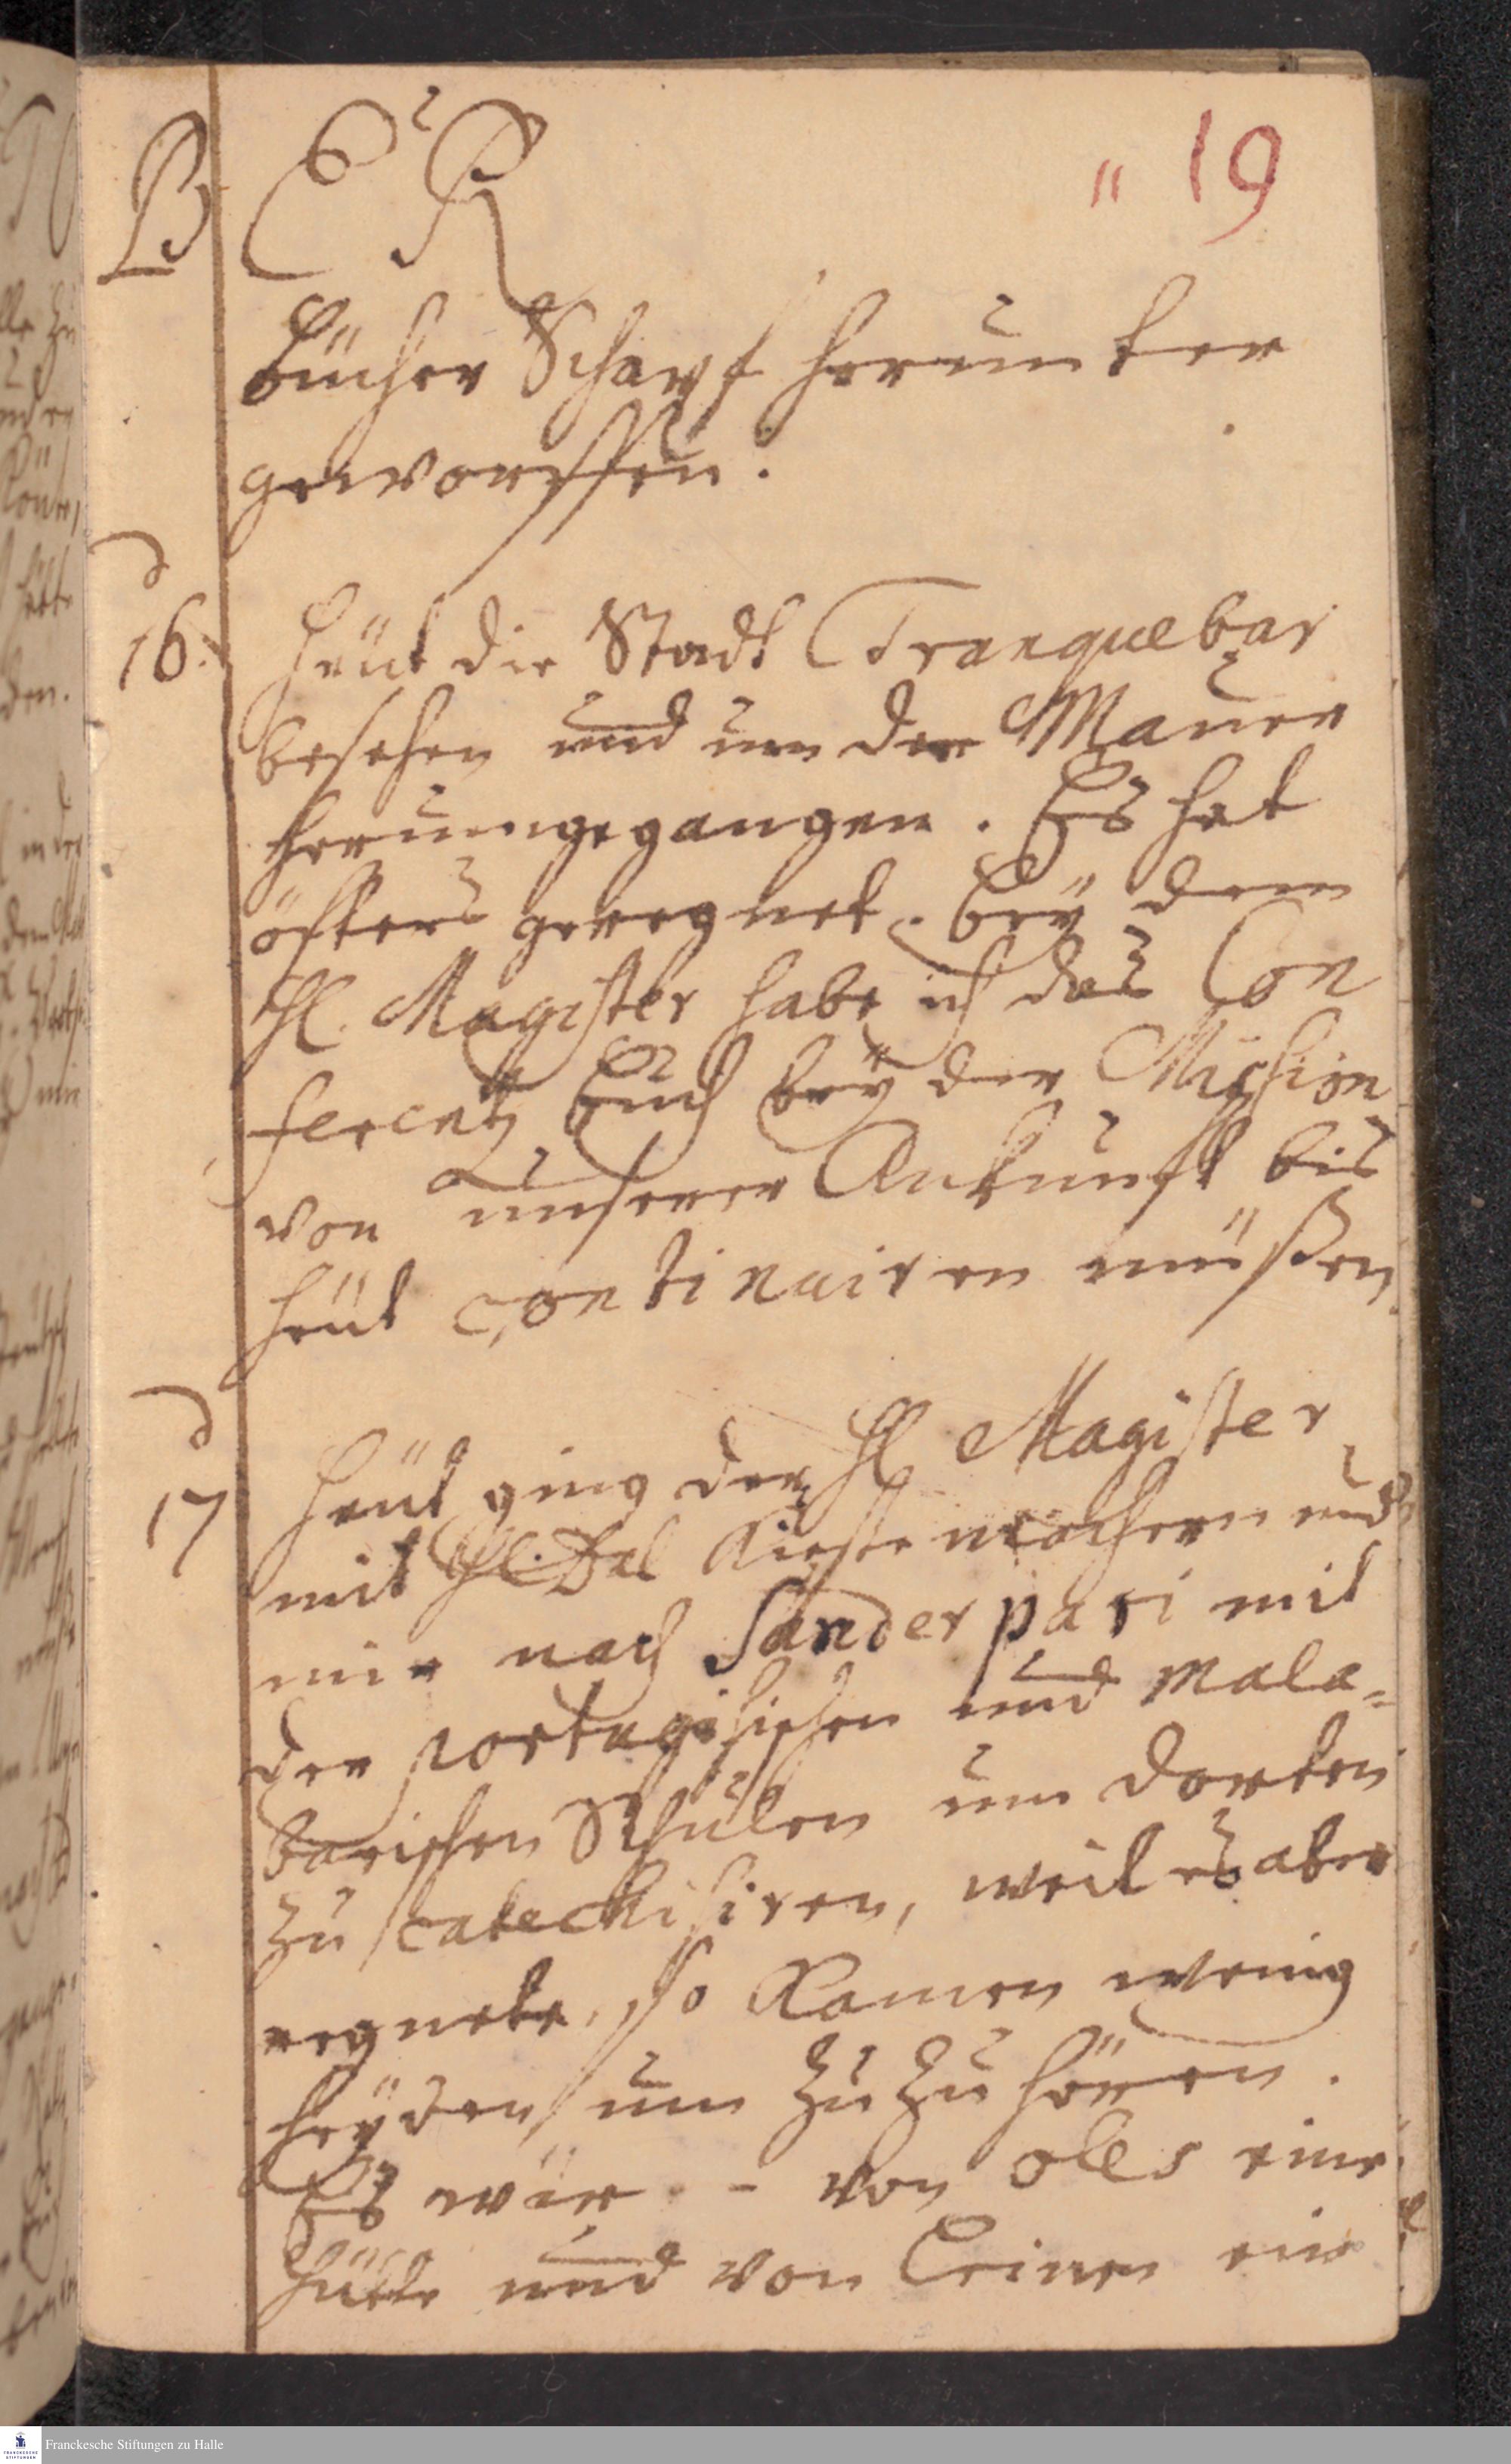 BER
" 19
bücher Scharf herunter
geworffen.
16. Heüt die Stadt Tranquebar
besehen und um der Mauer
herumgegangen. Es hat
öfters geregnet. Beÿ dem
H. Magister habe ich das Con
ferentz Buch beÿ der Mission
von unserer Ankunft bis
heüt continuiren müßen.
17 Heüt ging der H Magister
mit H. Dal Kiestemachern und
mir nach Sanderpari mit
der portugisischen und Mala-
barischen Schulen um dorten
zu catechisiren, weil es aber
regnete, so Kamen wenig
heÿden um zuzuhören.
Es war - von oles eine
Hütte und von Leimen ein
Franckesche Stiftungen zu Halle